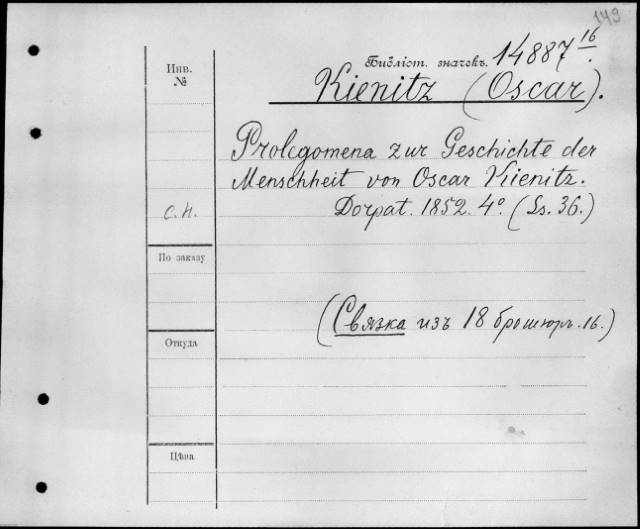 149
Библіот. значекъ. 14887 16.
Инв.
№
Kienitz (Oscar).
Prolegomena zur Geschichte der
Menschheit von Oscar Kienitz.
С.Н.
Dorpat. 1852. 4º. (Ss. 36.)
По заказу
(Связка изъ 18 брошюръ. 16.)
Откуда
Цѣна